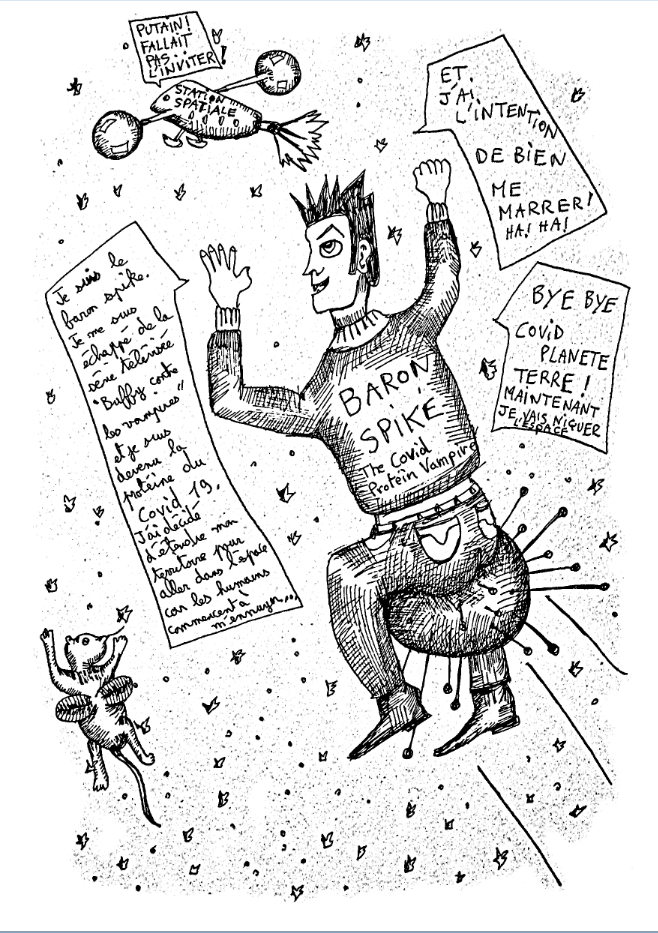 PUTAIN!
FALLAIT
PAS
L'INVITER!
STATION
SPATIALE
ET,
J'AI
L'INTENTION
DE BIEN
ME
MARRER!
HA! HA!
Je suis le
baron spike.
Je me suis
échappé de la
série télévisée
"Buffy contre
les vampires"
et je suis
devenu la
protéine du
Covid 19.
J'ai décidé
d'étendre mon
territoire pour
aller dans l'espace
car les humains
commencent à
m'ennuyer...
BYE BYE
COVID
PLANETE
TERRE!
MAINTENANT
JE VAIS NIQUER
L'ESPACE
BARON
SPIKE
The Covid
Protein Vampire